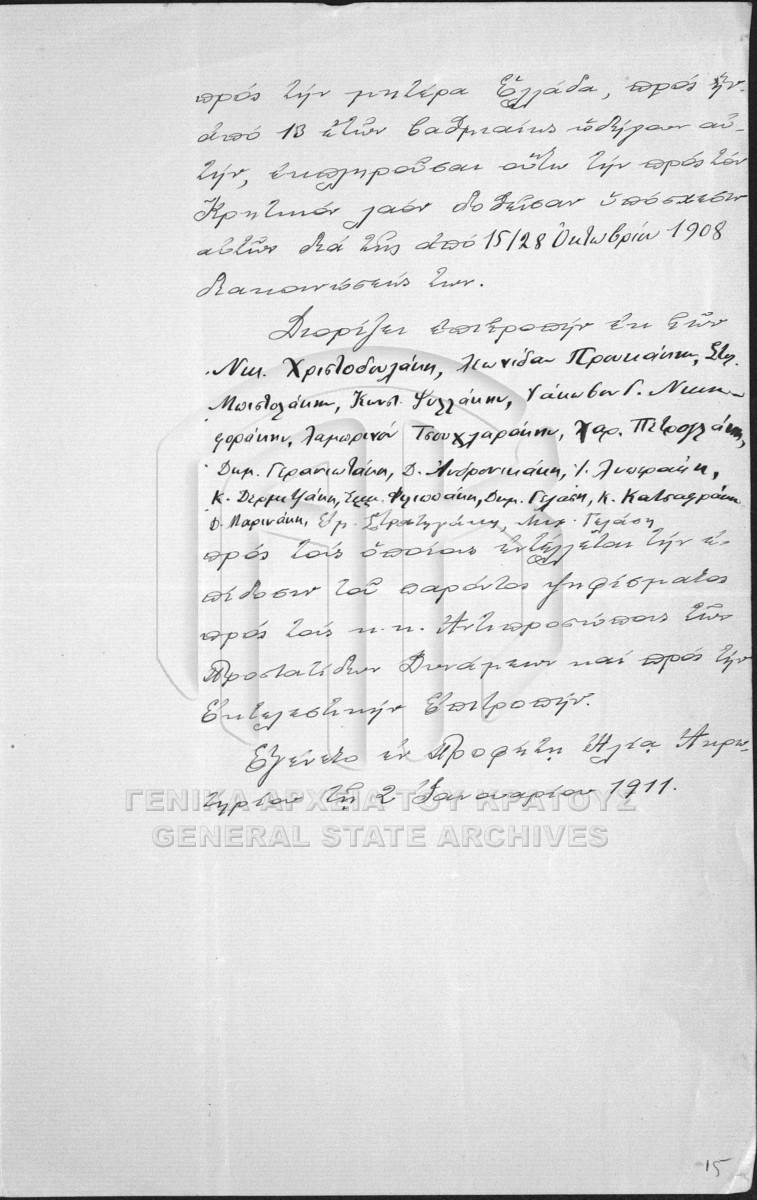 πρός τήν μητέρα Ἑλλάδα, πρός ἥν
ἀπό 13 ἐτῶν βαθμιαίως ὡδήγουν αὐ-
τήν, ἐκπληροῦσαι οὕτω τήν πρός τόν
Κρητικόν λαόν δοθεῖσαν ὑπόσχεσιν
αὐτῶν διά τῆς ἀπό 15/28 Ὀκτωβρίου 1908
διακοινώσεώς των.
Διορίζει ἐπιτροπήν ἐκ τῶν
Νικ. Χριστοδουλάκη, Λεωνίδαν Πρωϊκάκην, Στυλ.
Μπιστολάκην, Κωνστ. Ψυλλάκην, Ἰάκωβον Γ. Νικη-
φοράκην, Τσουχλαράκην, Χαρ. Πετρουλάκη,
Δημ. Γερανιωτάκη, Δ. Ἀνδρονικάκη, Ι. Λυπεράκη,
Κ. Δερμιτζάκη, Ἐμμ. Φιλιππάκη, Δημ. Γελάση, Κ. Κατσαφράκη
Δ. Μαρινάκη, Ἐμ. Στρατηγάκη, Νικ. Γελάση
πρός τούς ὁποίους ἐντέλλεται τήν ἐ-
πίδοσιν τοῦ παρόντος ψηφίσματος
πρός τούς κ.κ. Ἀντιπροσώπους τῶν
Προστατίδων Δυνάμεων καί πρός τήν
Ἐκτελεστικήν Ἐπιτροπήν.
Ἐγένετο ἐν Προφήτῃ Ἠλίᾳ Ἀκρω-
τηρίου τῇ 2 Ἰανουαρίου 1911.
ΓΕΝΙΚΑ ΑΡΧΕΙΑ ΤΟΥ ΚΡΑΤΟΥΣ
GENERAL STATE ARCHIVES
15